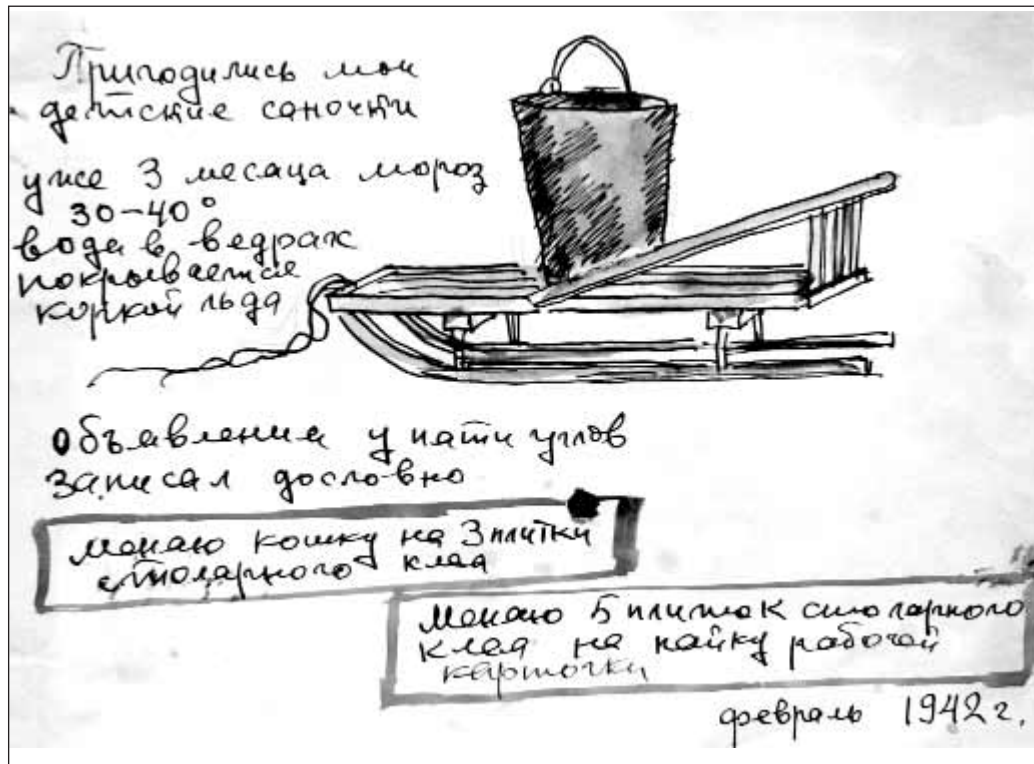 Пригодились мои
детские саночки
уже 3 месяца мороз
30-40°
вода в ведрах
покрывается
коркой льда
Объявления у пяти углов
записал дословно
меняю кошку на 3 плитки
столярного клея
меняю 5 плиток столярного
клея на пайку рабочей
карточки
февраль 1942 г.